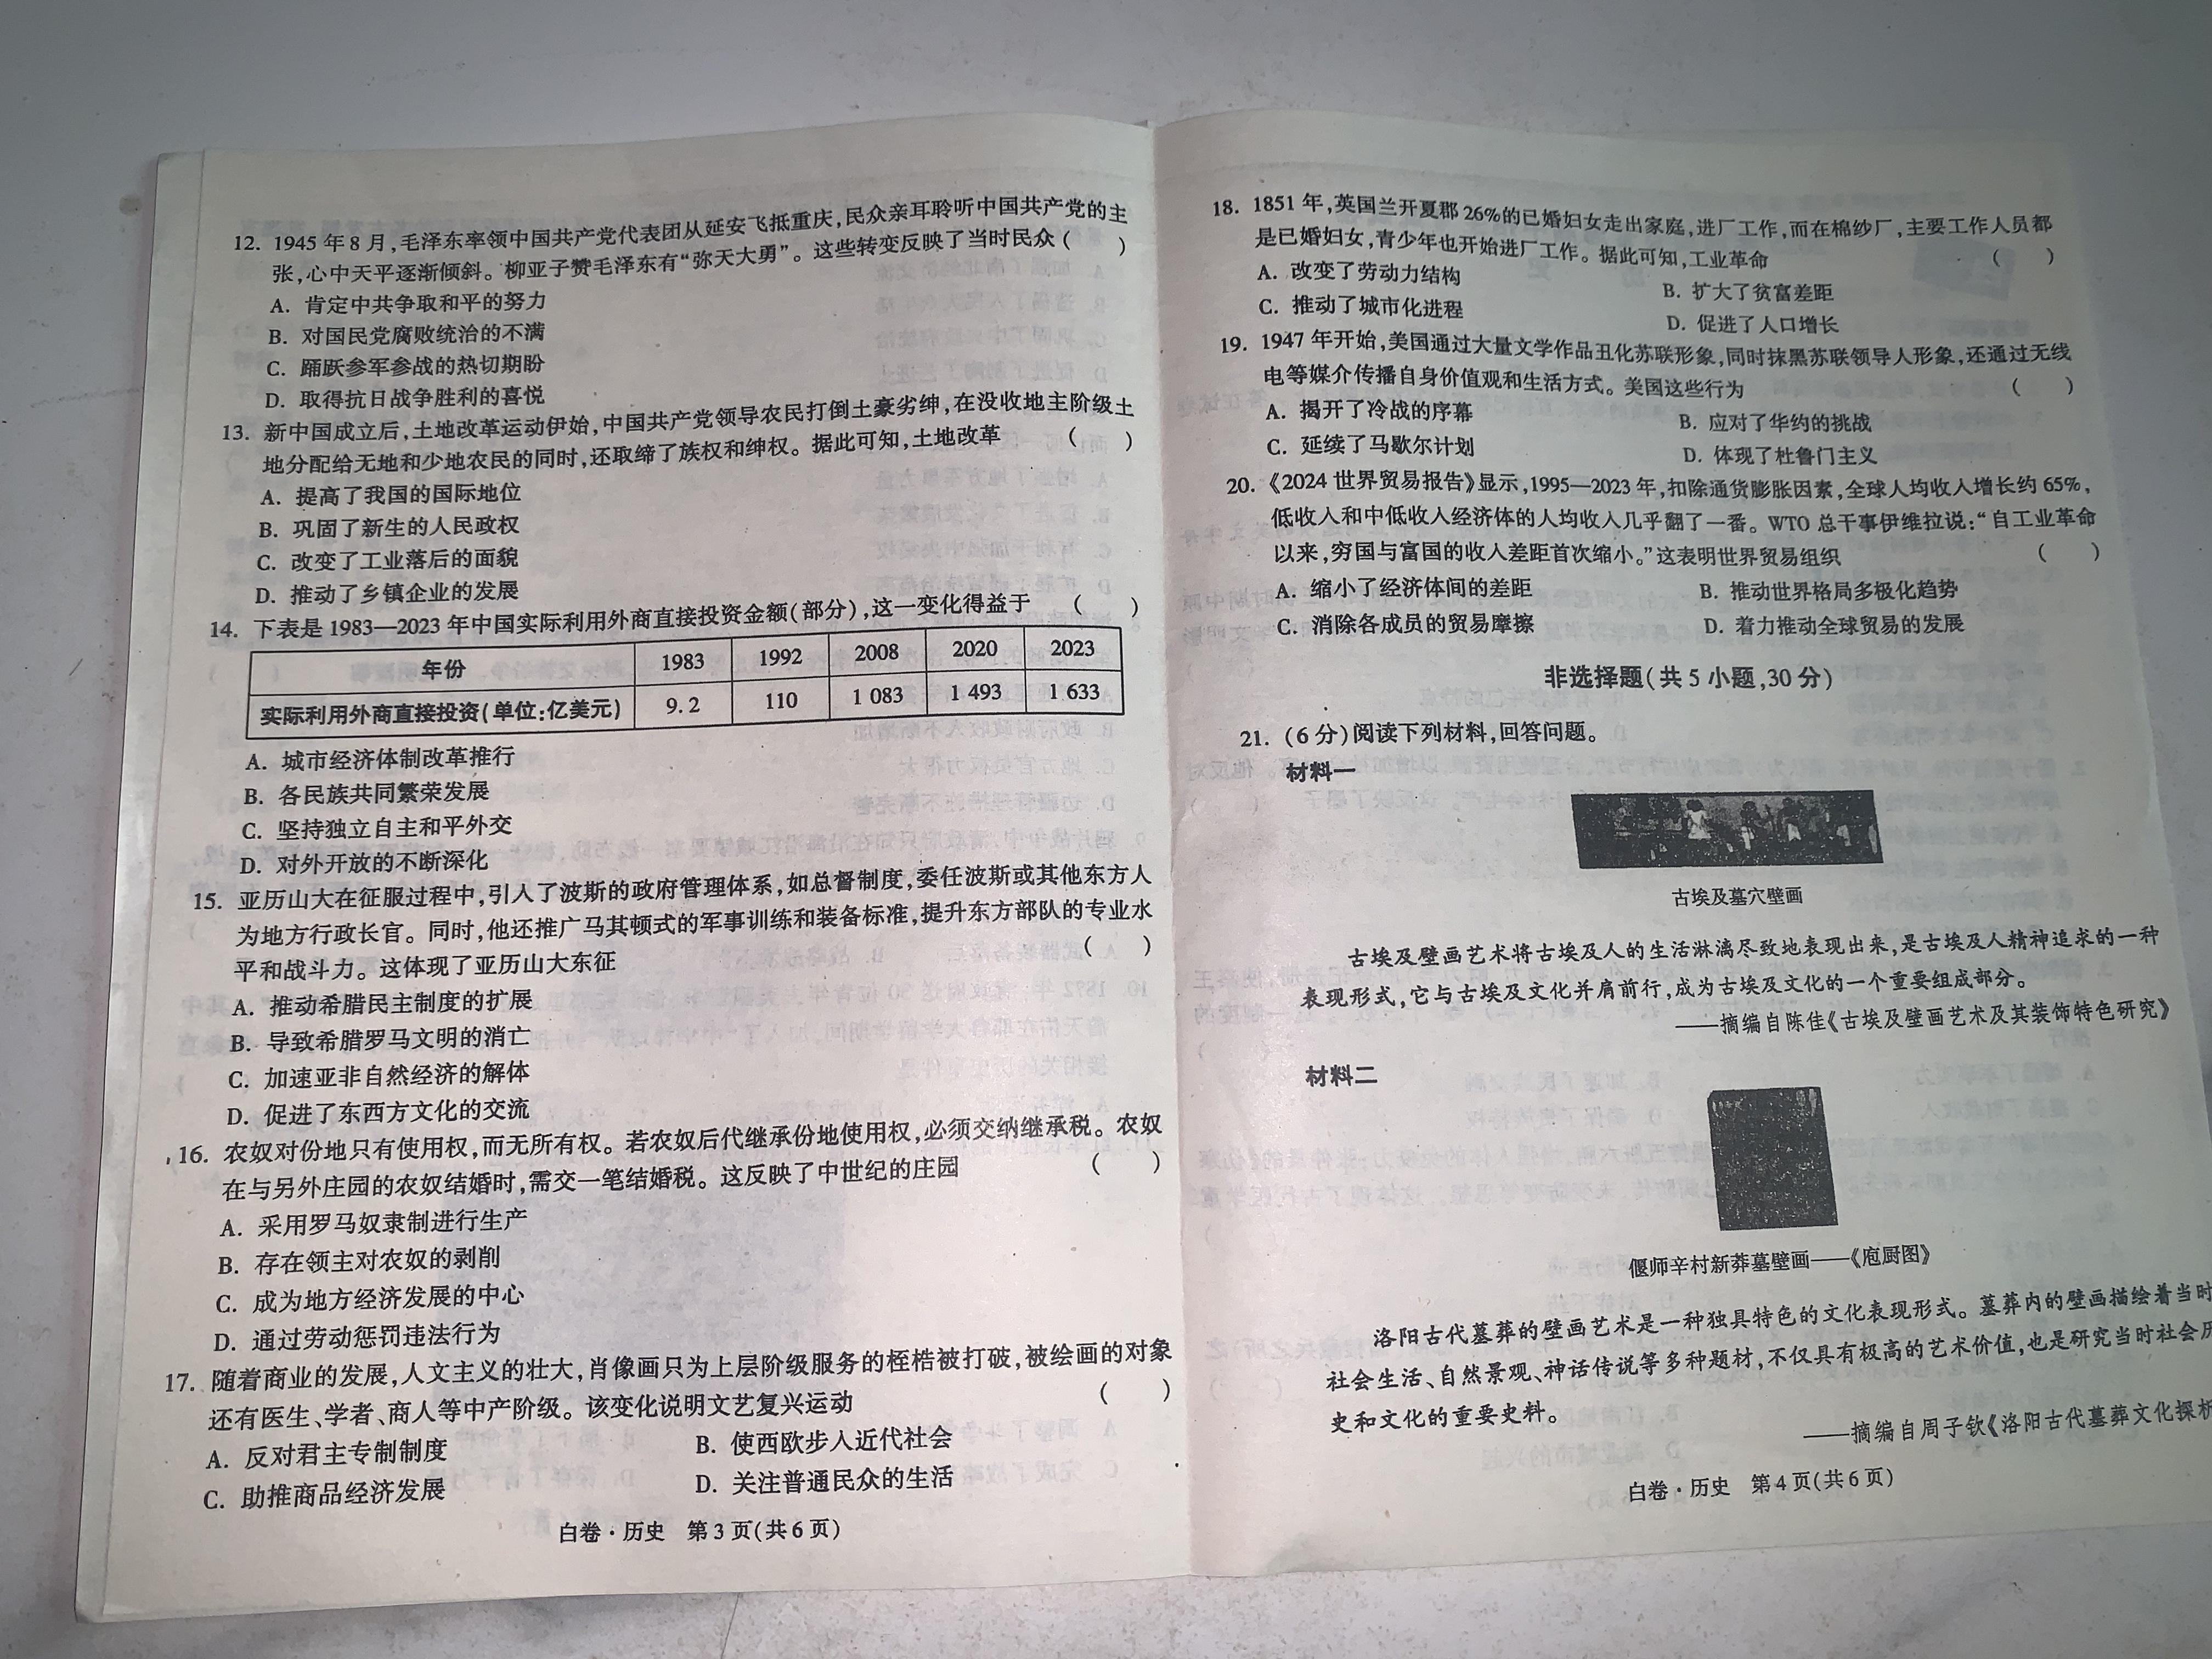 12. 1945年8月,毛泽东率领中国共产党代表团从延安飞抵重庆,民众亲耳聆听中国共产党的主
张,心中天平逐渐倾斜。柳亚子赞毛泽东有“弥天大勇”。这些转变反映了当时民众(  )
A. 肯定中共争取和平的努力
B. 对国民党腐败统治的不满
C. 踊跃参军参战的热切期盼
D. 取得抗日战争胜利的喜悦
13. 新中国成立后,土地改革运动伊始,中国共产党领导农民打倒土豪劣绅,在没收地主阶级土
地分配给无地和少地农民的同时,还取缔了族权和绅权。据此可知,土地改革 (  )
A. 提高了我国的国际地位
B. 巩固了新生的人民政权
C. 改变了工业落后的面貌
D. 推动了乡镇企业的发展
14. 下表是1983—2023年中国实际利用外商直接投资金额(部分),这一变化得益于 (  )
年份 1983 1992 2008 2020 2023
实际利用外商直接投资(单位:亿美元) 9.2 110 1 083 1 493 1 633
A. 城市经济体制改革推行
B. 各民族共同繁荣发展
C. 坚持独立自主和平外交
D. 对外开放的不断深化
15. 亚历山大在征服过程中,引入了波斯的政府管理体系,如总督制度,委任波斯或其他东方人
为地方行政长官。同时,他还推广马其顿式的军事训练和装备标准,提升东方部队的专业水
平和战斗力。这体现了亚历山大东征 (  )
A. 推动希腊民主制度的扩展
B. 导致希腊罗马文明的消亡
C. 加速亚非自然经济的解体
D. 促进了东西方文化的交流
16. 农奴对份地只有使用权,而无所有权。若农奴后代继承份地使用权,必须交纳继承税。农奴
在与另外庄园的农奴结婚时,需交一笔结婚税。这反映了中世纪的庄园 (  )
A. 采用罗马奴隶制进行生产
B. 存在领主对农奴的剥削
C. 成为地方经济发展的中心
D. 通过劳动惩罚违法行为
17. 随着商业的发展,人文主义的壮大,肖像画只为上层阶级服务的桎梏被打破,被绘画的对象
还有医生、学者、商人等中产阶级。该变化说明文艺复兴运动 (  )
A. 反对君主专制制度 B. 使西欧步入近代社会
C. 助推商品经济发展 D. 关注普通民众的生活
白卷·历史 第3页(共6页)
18. 1851年,英国兰开夏郡26%的已婚妇女走出家庭,进厂工作,而在棉纱厂,主要工作人员都
是已婚妇女,青少年也开始进厂工作。据此可知,工业革命 (  )
A. 改变了劳动力结构 B. 扩大了贫富差距
C. 推动了城市化进程 D. 促进了人口增长
19. 1947年开始,美国通过大量文学作品丑化苏联形象,同时抹黑苏联领导人形象,还通过无线
电等媒介传播自身价值观和生活方式。美国这些行为 (  )
A. 揭开了冷战的序幕 B. 应对了华约的挑战
C. 延续了马歇尔计划 D. 体现了杜鲁门主义
20. 《2024世界贸易报告》显示,1995—2023年,扣除通货膨胀因素,全球人均收入增长约65%,
低收入和中低收入经济体的人均收入几乎翻了一番。WTO总干事伊维拉说:“自工业革命
以来,穷国与富国的收入差距首次缩小。”这表明世界贸易组织 (  )
A. 缩小了经济体间的差距 B. 推动世界格局多极化趋势
C. 消除各成员的贸易摩擦 D. 着力推动全球贸易的发展
非选择题(共5小题,30分)
21. (6分)阅读下列材料,回答问题。
材料一
古埃及墓穴壁画
古埃及壁画艺术将古埃及人的生活淋漓尽致地表现出来,是古埃及人精神追求的一种
表现形式,它与古埃及文化并肩前行,成为古埃及文化的一个重要组成部分。
——摘编自陈佳《古埃及壁画艺术及其装饰特色研究》
材料二
偃师辛村新莽墓壁画——《庖厨图》
洛阳古代墓葬的壁画艺术是一种独具特色的文化表现形式。墓葬内的壁画描绘着当时
社会生活、自然景观、神话传说等多种题材,不仅具有极高的艺术价值,也是研究当时社会历
史和文化的重要史料。
——摘编自周子钦《洛阳古代墓葬文化探析
白卷·历史 第4页(共6页)